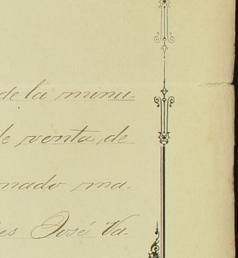 de la minu-
de venta, de
nado ma-
es José Va-